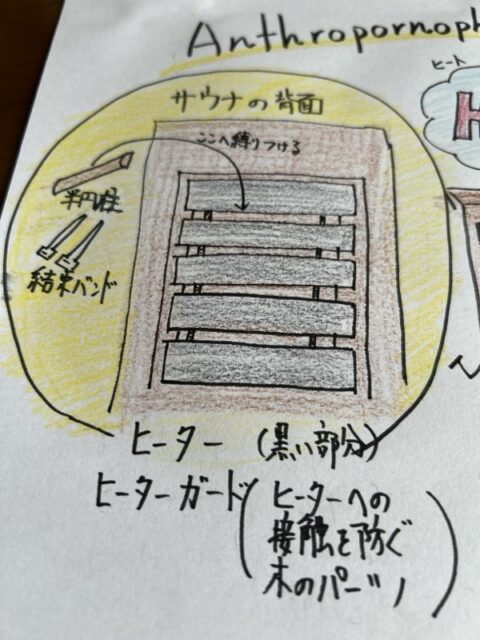 Anthropornoph
ヒート
H
サウナの背面
ここへ縛りつける
半円柱
結束バンド
ヒーター (黒い部分)
ヒーターガード(ヒーターへの
接触を防ぐ
木のパーツ)